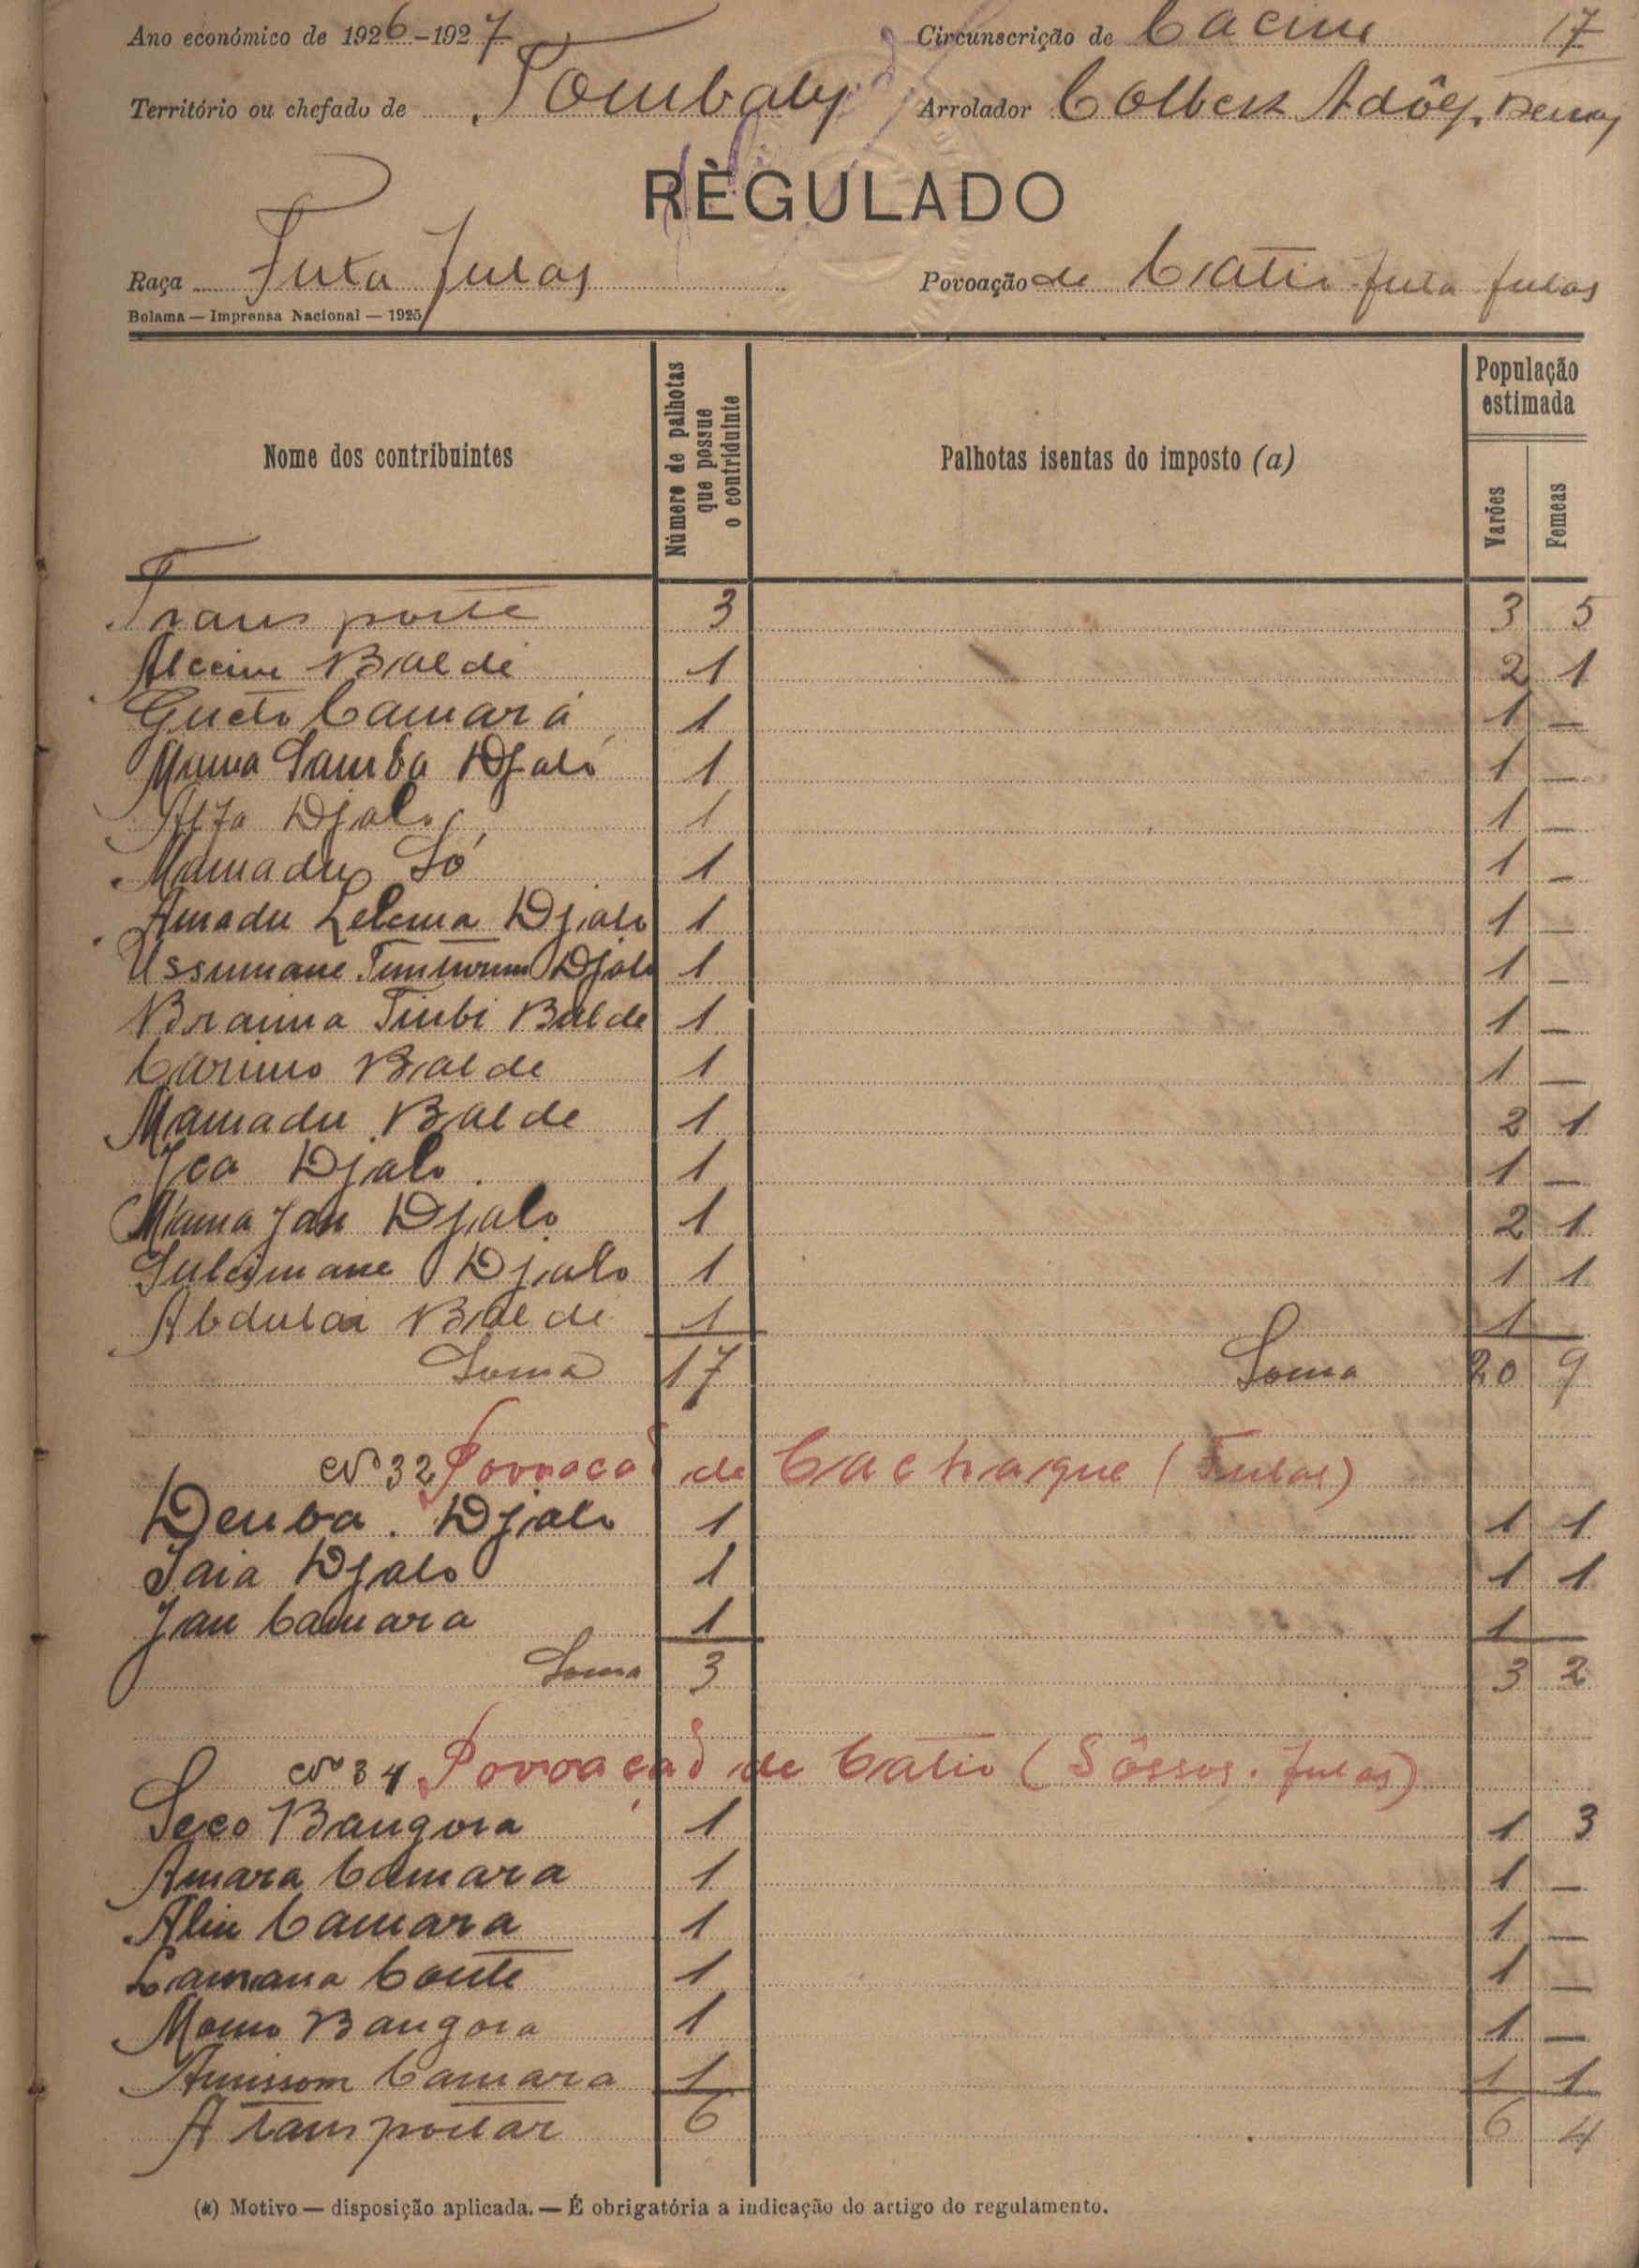 Ano económico de 1926-1927 Circunscrição de Cacine 17
Território ou chefado de Tombaly Arrolador Colbert Adôlf.
RÈGULADO
Raça Futa fulas Povoação de Catió futa fulas
Bolama — Imprensa Nacional — 1925
Nome dos contribuintes
Número de palhotas que possue o contriduinte
Palhotas isentas do imposto (a)
População estimada
Varões
Femeas
Transporte 3 3 5
Baldé 1 2 1
Camará 1 1 —
Mama Samba Djaló 1 1 —
Alfa Djalo 1 1 —
Mamadu Só 1 1 —
Amadu Lelema Djalo 1 1 —
Ussumane Djalo 1 1 —
Braima Timbi Balde 1 1 —
Carimo Balde 1 1 —
Mamadu Balde 1 2 1
Iça Djalo 1 1 —
Mama Jan Djalo 1 2 1
Suleimane Djalo 1 1 1
Abdulai Balde 1 1
Soma 17 Soma 20 9
Nº 32 Povoação de Cachaque (Fulas)
Demba Djalo 1 1 1
Saia Djalo 1 1 1
Jan Camara 1 1
Soma 3 3 2
Nº 34 Povoação de Catió (Sôssos. fulas)
Seco Bangora 1 1 3
Amara Camara 1 1 —
Aliu Camara 1 1 —
Lamana Conté 1 1 —
Momo Bangora 1 1 —
Camara 1 1 1
A transportar 6 6 4
(a) Motivo — disposição aplicada. — É obrigatória a indicação do artigo do regulamento.